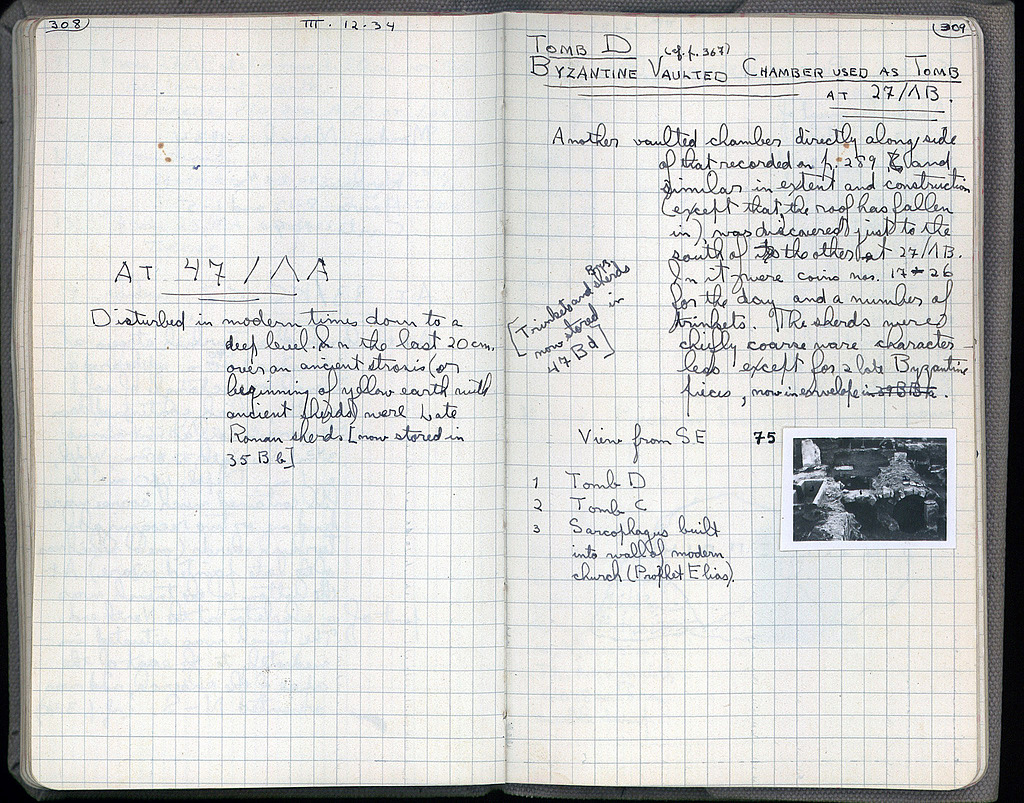 308
III . 12-34
AT 47 / Λ Α
Disturbed in modern times down to a
deep level. In the last 20 cm.
over an ancient strosis (or
beginning of yellow earth with
ancient sherds) were Late
Roman sherds [now stored in
35 B b]
309
TOMB D (cf. p. 367)
BYZANTINE VAULTED CHAMBER USED AS TOMB
AT 27/Λ B.
Another vaulted chamber directly along side
of that recorded on p. 289 and
similar in extent and construction
(except that the roof has fallen
in) was discovered just to the
south of the other at 27/Λ B.
In it were coins nos. 17-26
for the day and a number of
trinkets. The sherds were
chiefly coarse ware character
less except for a late Byzantine
pieces, now in envelope in 39 B B.
[Trinkets and Byz. sherds
now stored in
47 B d]
View from SE 75
1 Tomb D
2 Tomb C
3 Sarcophagus built
into wall of modern
church (Prophet Elias).